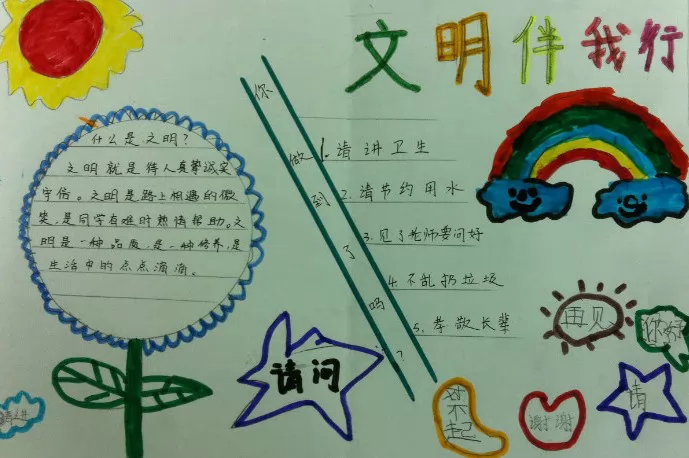 文明伴我行
什么是文明?
文明就是待人真挚诚实
守信。文明是路上相遇的微
笑,是同学有难时热情帮助。文
明是一种品质,是一种修养,是
生活中的点点滴滴。
你做到了吗?
1.请讲卫生
2.请节约用水
3.见了老师要问好
4.不乱扔垃圾
5.孝敬长辈
请问
再见
你好
对不起
谢谢
请